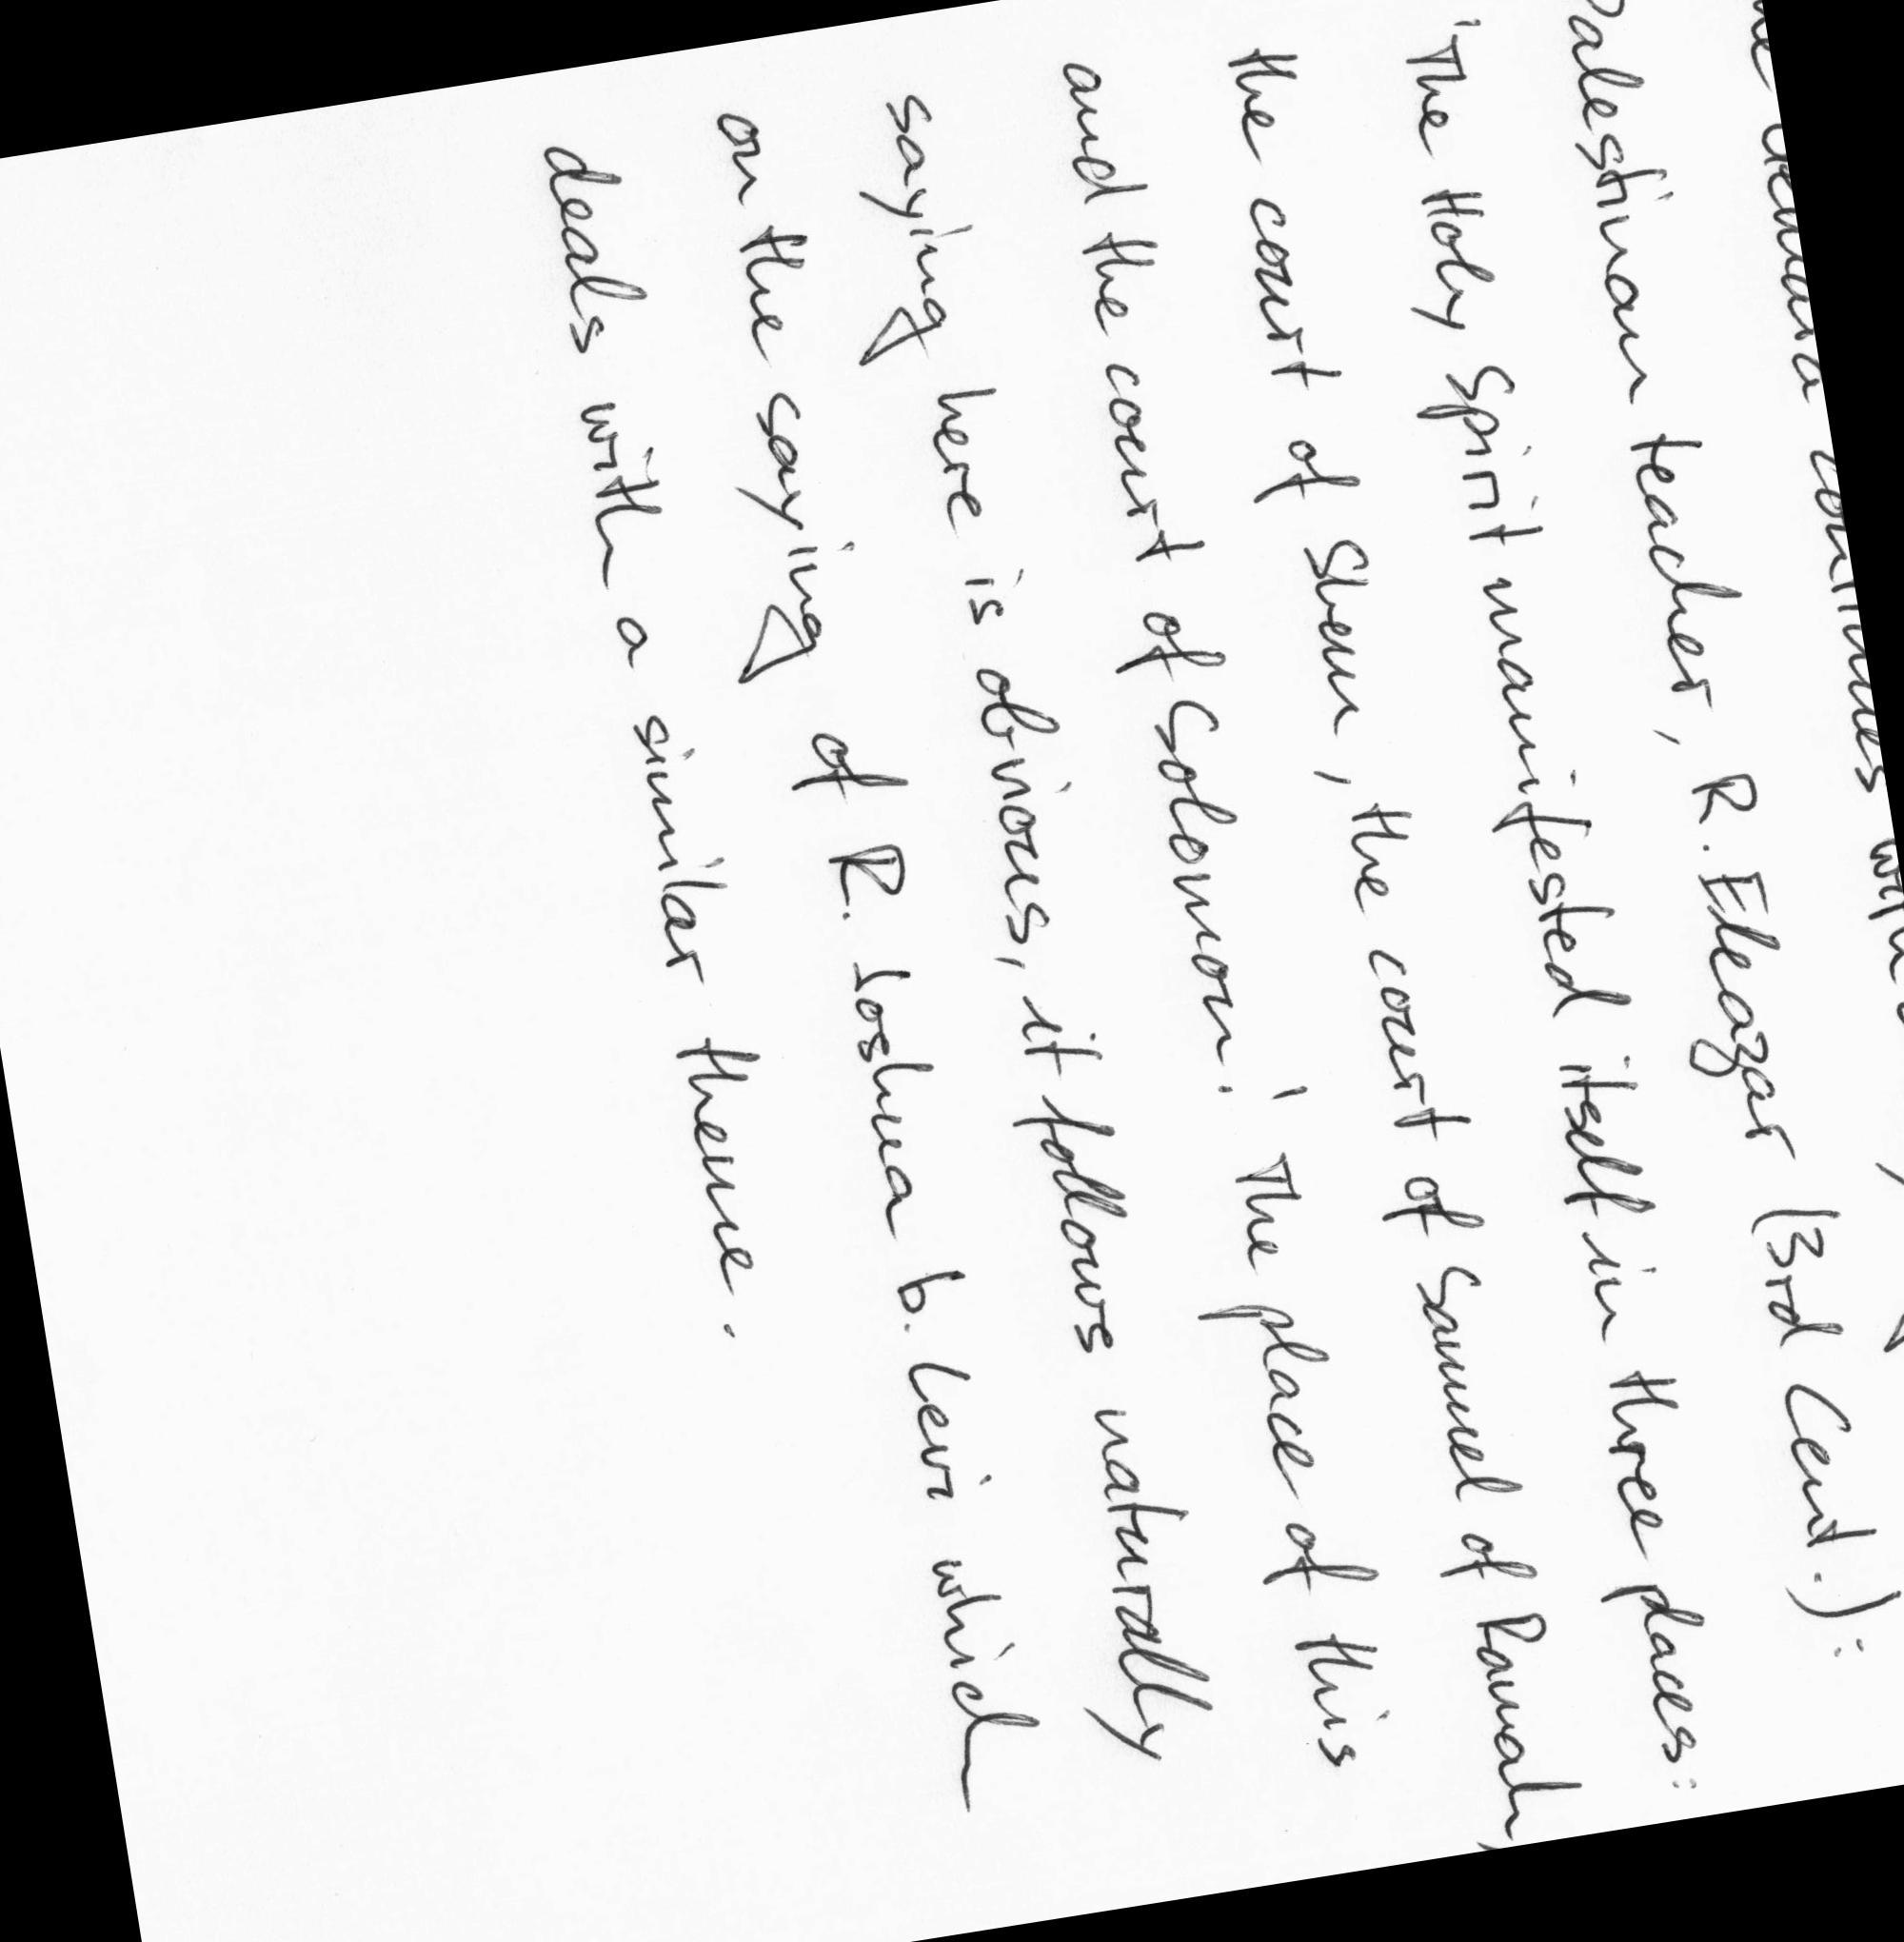 continues
Palestinian teacher, R. Eleazar (3rd Cent.):
'The Holy Spirit manifested itself in three places:
the court of Shem, the court of Samuel of Ramah,
and the court of Solomon.' The place of this
saying here is obvious, it follows naturally
on the saying of R. Joshua b. Levi which
deals with a similar theme.